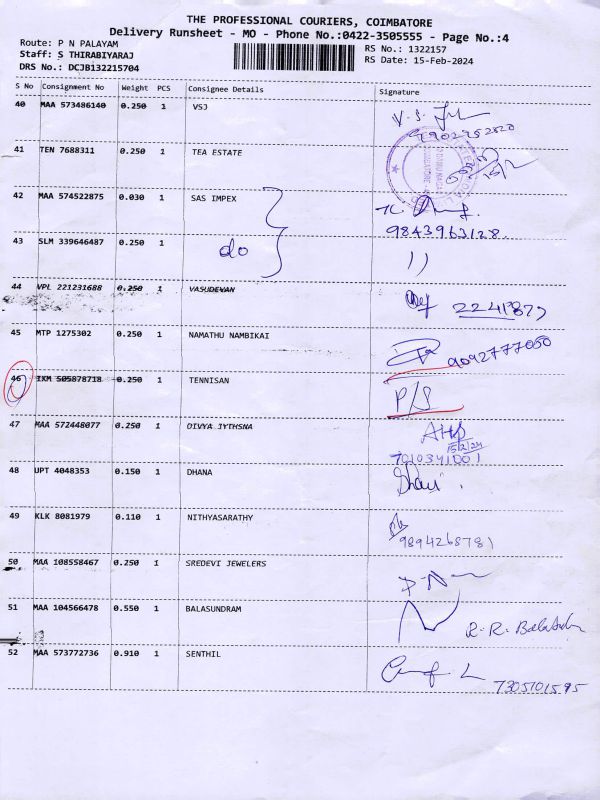 THE PROFESSIONAL COURIERS, COIMBATORE
Delivery Runsheet - MO - Phone No.:0422-3505555 - Page No.:4
Route: P N PALAYAM
RS No.: 1322157
Staff: S THIRABIYARAJ
RS Date: 15-Feb-2024
DRS No.: DCJB132215704
S No Consignment No Weight PCS Consignee Details Signature
40 MAA 573486140 0.250 1 VSJ
41 TEN 7688311 0.250 1 TEA ESTATE
42 MAA 574522875 0.030 1 SAS IMPEX
9843963128
43 SLM 339646487 0.250 1 do
44 VPL 221231688 0.250 1 VASUDEVAN
45 MTP 1275302 0.250 1 NAMATHU NAMBIKAI
9092777050
46 IXM 505878718 0.250 1 TENNISAN P/S
47 MAA 572448077 0.250 1 DIVYA JYTHSNA
15/2/24
7010341001
48 UPT 4048353 0.150 1 DHANA
49 KLK 8081979 0.110 1 NITHYASARATHY
9894268781
50 MAA 108558467 0.250 1 SREDEVI JEWELERS
51 MAA 104566478 0.550 1 BALASUNDRAM
52 MAA 573772736 0.910 1 SENTHIL
7305101595